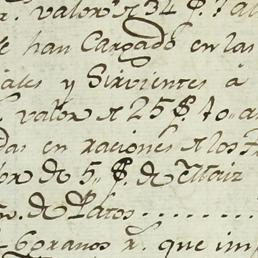 r. valor de 34 $. ?
se han Cargado en las
iales y Sirvientes à
valor de 25 $.
das en raciones de los
or de 5 „ $. de Maiz
de Platos . . . . . . . .
Granos r.. que im